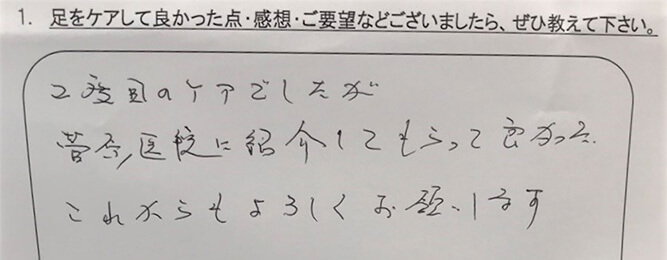 1. 足をケアして良かった点・感想・ご要望などございましたら、ぜひ教えて下さい。
2度目のケアでしたが
菅原医院に紹介してもらって良かった。
これからもよろしくお願いします